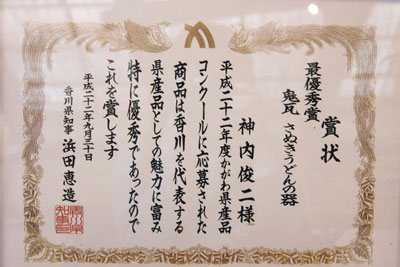 賞状
最優秀賞
鬼瓦 さぬきうどんの器
神内俊二様
平成二十二年度かがわ県産品
コンクールに応募された
商品は香川を代表する
県産品としての魅力に富み
特に優秀であったので
これを賞します
平成二十二年九月三十日
香川県知事 浜田恵造